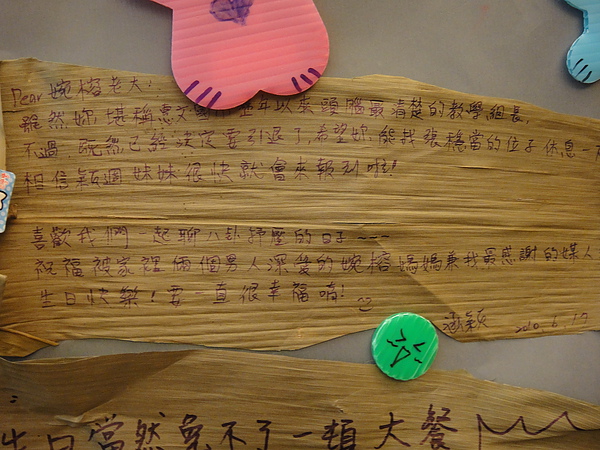 Dear 婉榕老大:
雖然妳堪稱惠文 年以來頭腦最清楚的教學組長,
不過,既然已經決定要引退了,希望妳能找張穩當的位子休息一
相信 週妹妹很快就會來報到啦!
喜歡我們一起聊八卦紓壓的日子~~~
祝福被家裡兩個男人深愛的婉榕媽媽兼我最感謝的媒人
生日快樂!要一直很幸福唷!
涵穎 2010.6.17
生日當然免不了一頓大餐